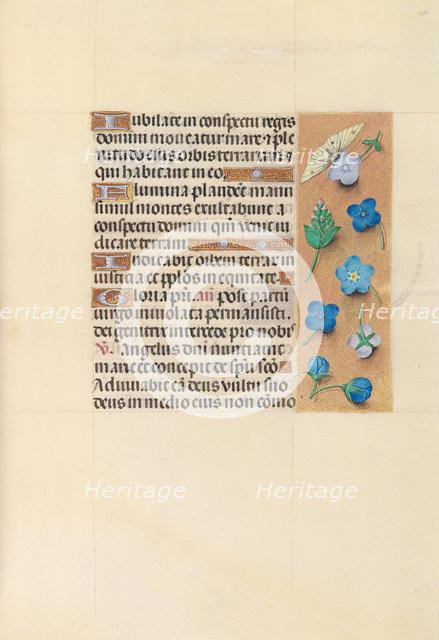 Iubilate in conspectu regis
domini moueatur mare ⁊ ple
nitudo eius orbis terrarum ⁊
qui habitant in eo.
Flumina plaudēt manu
simul montes exultabunt a
conspectu domini qm̄ venit iu
dicare terram.
Iudicabit orbem terrar in
iusticia et pplos in equitate.
Gloria pri. an̄ post partū
uirgo inuiolata permansisti
dei genitrix intercede pro nobis
V. Angelus dni nunciauit
marie et concepit de spū sco.
Adiuuabit eā deus vultu suo
deus in medio eius non cōmo
Heritage
Heritage
Heritage
Heritage
Heritage
Heritage
Heritage